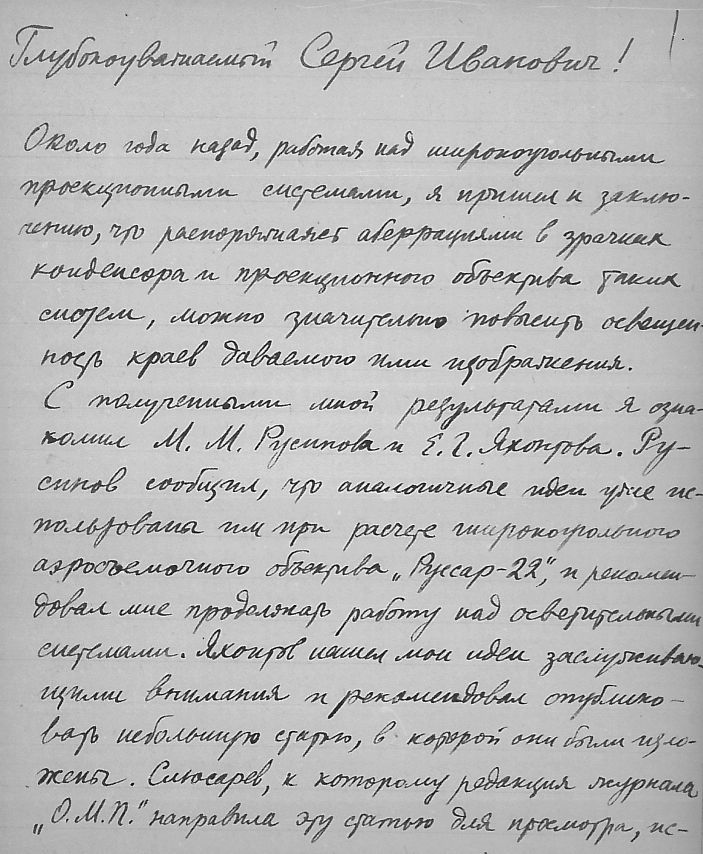 1.
Глубокоуважаемый Сергей Иванович!
Около года назад, работая над широкоугольными
проекционными системами, я пришел к заклю-
чению, что распоряжаясь аберрациями в зрачках
конденсора и проекционного объектива таких
систем, можно значительно повысить освещен-
ность краев даваемого ими изображения.
С полученными мной результатами я озна-
комил М. М. Русинова и Е. Г. Яхонтова. Ру-
синов сообщил, что аналогичные идеи уже ис-
пользованы им при расчете широкоугольного
аэросъемочного объектива „Руссар-22", и рекомен-
довал мне продолжать работу над осветительными
системами. Яхонтов нашел мои идеи заслуживаю-
щими внимания и рекомендовал опублико-
вать небольшую статью, в которой они были изло-
жены. Слюсарев, к которому редакция журнала
„О.М.П." направила эту статью для просмотра, ис-